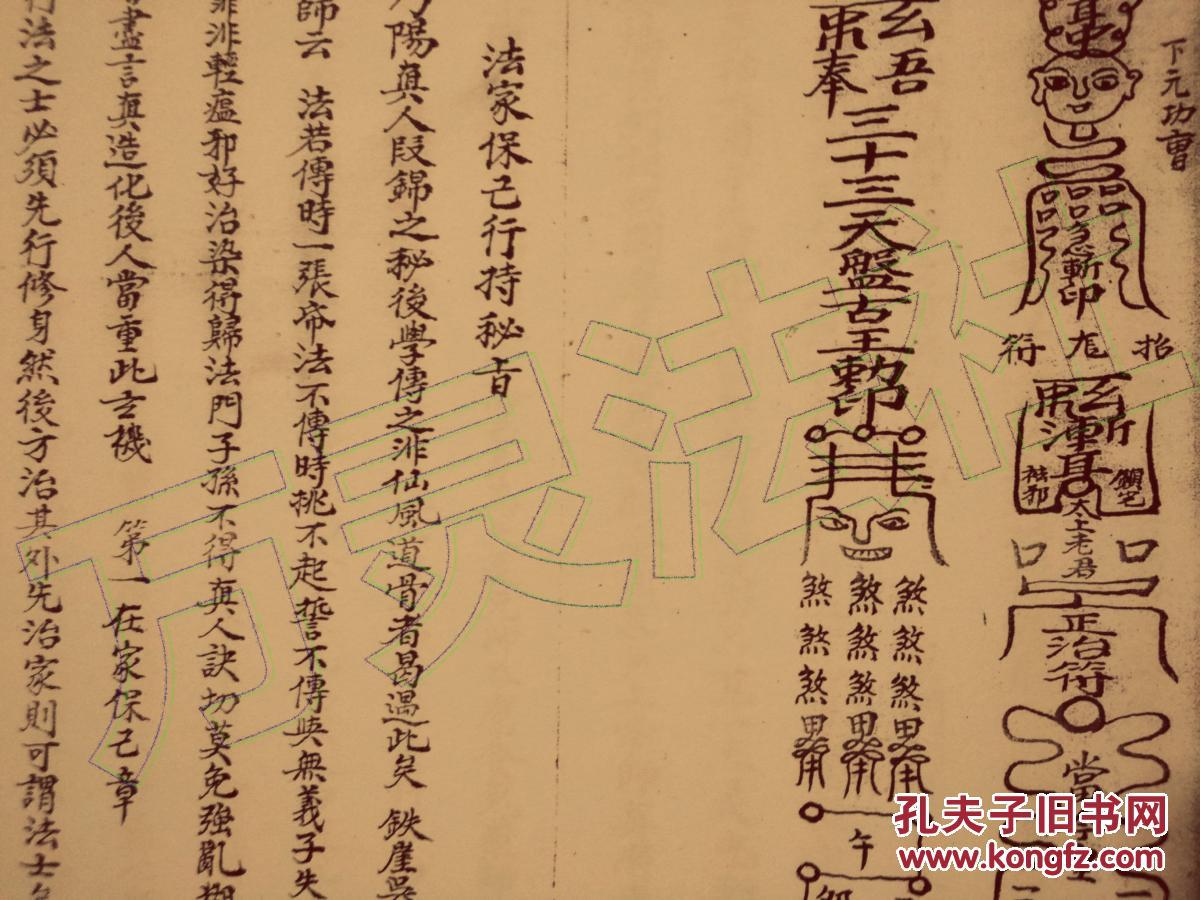 下元功曹
急斬印
招
符
玄斬
鎮宅
祛邪
太上老君
口
口
正治符
玄吾
奉
三十三天盤古王勅印
煞煞煞
煞煞煞
煞煞煞
午
法家保己行持秘旨
陽真人段錦之秘後學傳之非仙風道骨者曷遇此矣 鉄崖
師云 法若傳時一張帋法不傳時挑不起誓不傳與無義子失
非輕瘟邪好治染得歸法門子孫不得真人訣切莫免強亂
盡言真造化後人當重此玄機 第一在家保己章
行法之士必須先行修身然後方治其外先治家則可謂法士
万灵法社
孔夫子旧书网
www.kongfz.com